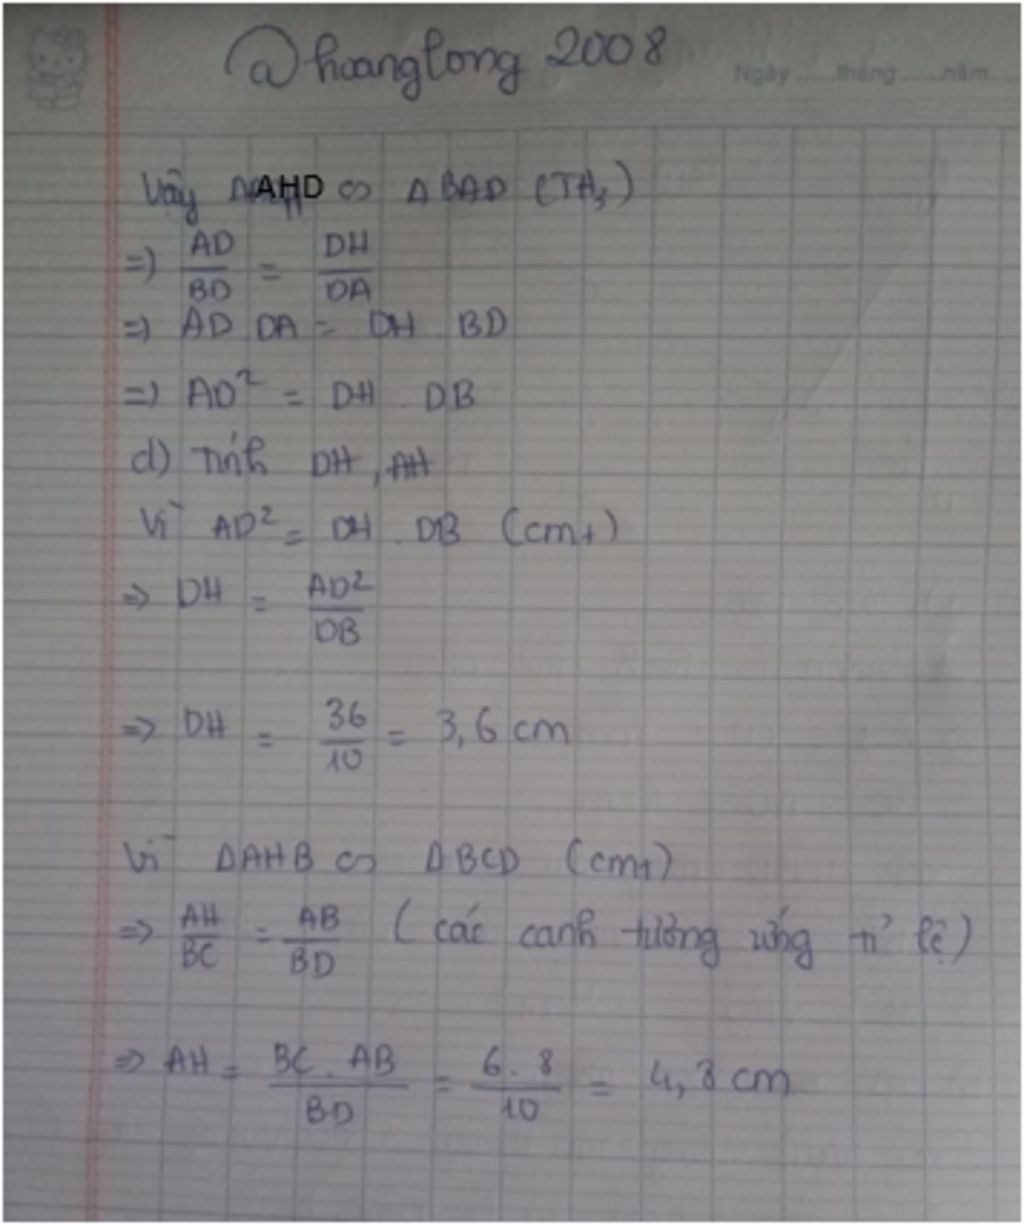 @hoanglong 2008
Ngày ......tháng ......năm......
Vậy ΔAHD ∽ ΔBAD (TH₃)
=) AD/BD = DH/DA
=) AD DA = DH . BD
=) AD² = DH . DB
d) Tính DH, AH
Vì AD² = DH . DB (cmt)
=> DH = AD²/DB
=> DH = 36/10 = 3,6 cm
Vì ΔAHB ∽ ΔBCD (cmt)
=> AH/BC = AB/BD (các cạnh tương ứng tỉ lệ)
=> AH = BC . AB/BD = 6 . 8/10 = 4,8 cm